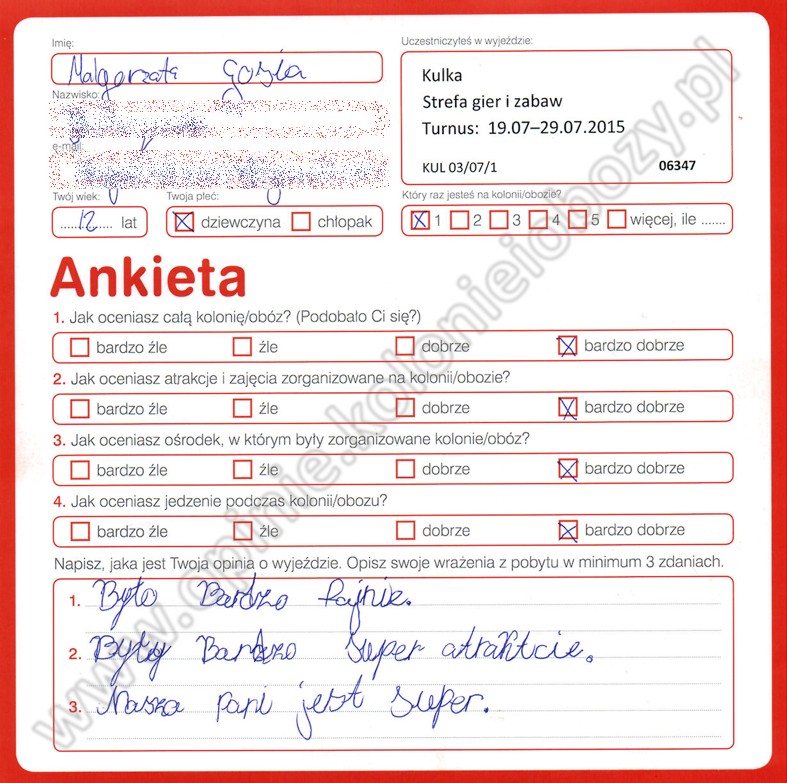 Imię:
Małgorzata Gosia
Uczestniczyłeś w wyjeździe:
Kulka
Strefa gier i zabaw
Turnus: 19.07–29.07.2015
KUL 03/07/1 06347
Nazwisko:
e-mail
Twój wiek:
12 lat
Twoja płeć:
dziewczyna chłopak
Który raz jesteś na kolonii/obozie?
1 2 3 4 5 więcej, ile .......
Ankieta
1. Jak oceniasz całą kolonię/obóz? (Podobało Ci się?)
bardzo źle źle dobrze bardzo dobrze
2. Jak oceniasz atrakcje i zajęcia zorganizowane na kolonii/obozie?
bardzo źle źle dobrze bardzo dobrze
3. Jak oceniasz ośrodek, w którym były zorganizowane kolonie/obóz?
bardzo źle źle dobrze bardzo dobrze
4. Jak oceniasz jedzenie podczas kolonii/obozu?
bardzo źle źle dobrze bardzo dobrze
Napisz, jaka jest Twoja opinia o wyjeździe. Opisz swoje wrażenia z pobytu w minimum 3 zdaniach.
1. Było Bardzo fajnie.
2. Były Bardzo super atraktcie.
3. Nasza pani jest super.
www.opinie.kolonieiobozy.pl